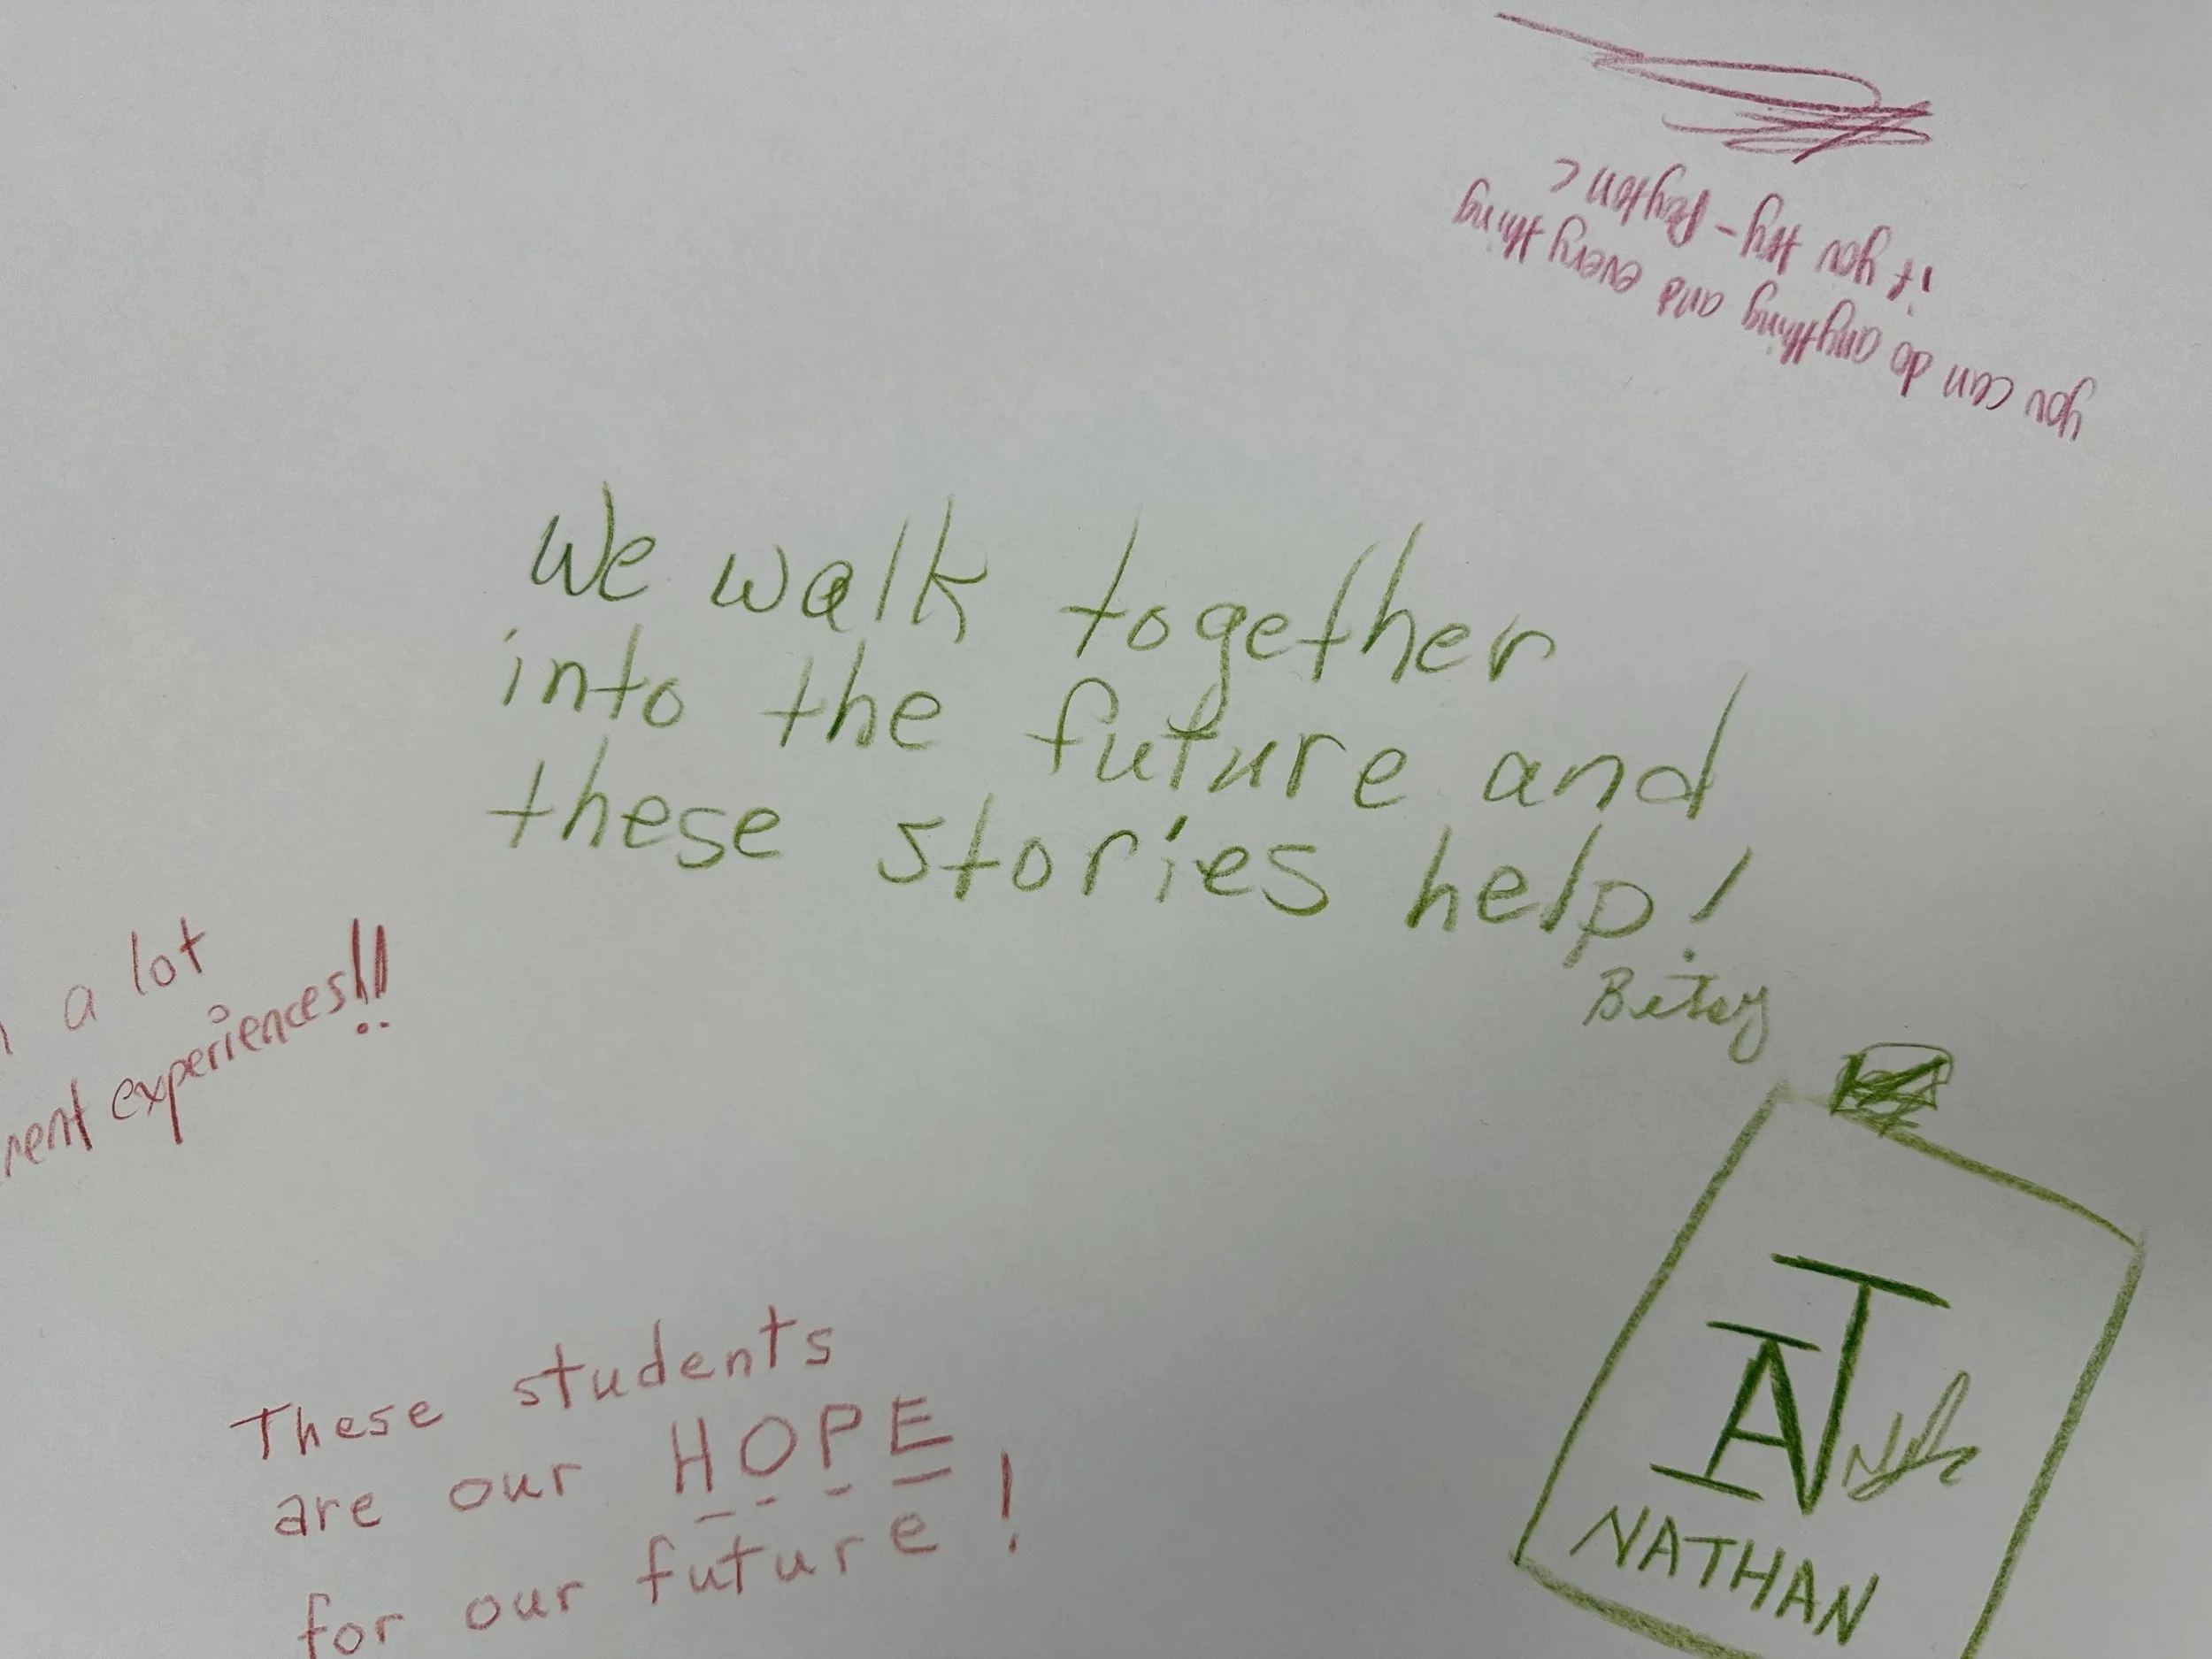 you can do anything and every thing
if you try - Peyton C
We walk together
into the future and
these stories help!
Betsy
a lot
experiences!!
These students
are our HOPE
for our future!
NATHAN